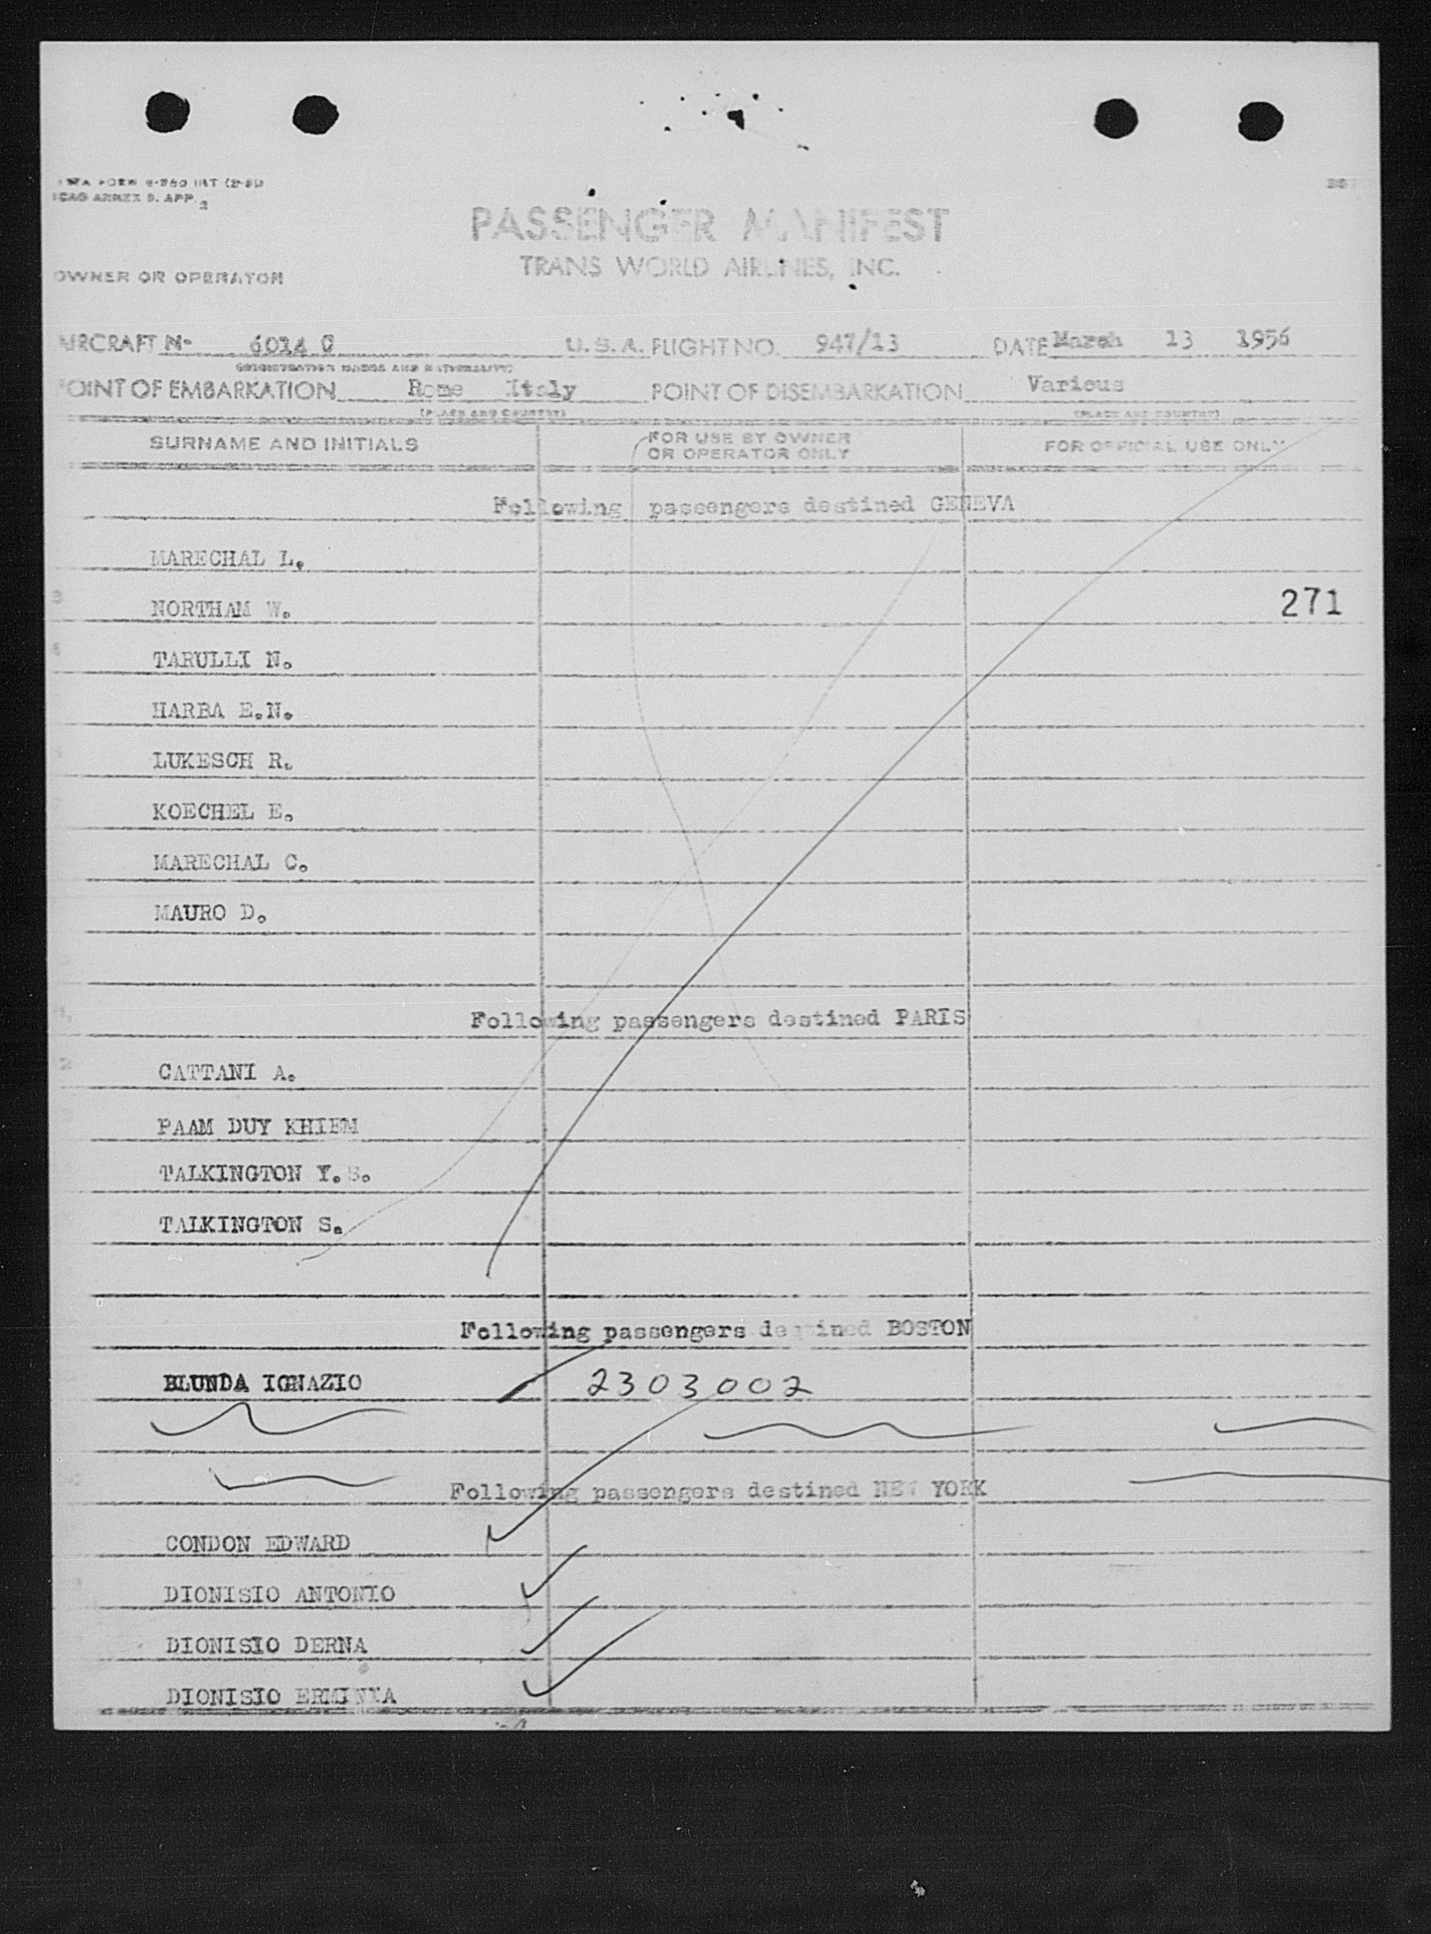 TWA FORM
ICAO ANNEX 9. APP. 2
PASSENGER MANIFEST
TRANS WORLD AIRLINES, INC.
OWNER OR OPERATOR
AIRCRAFT No 6014 C U. S. A. FLIGHT NO. 947/13 DATE March 13 1956
(REGISTRATION MARKS AND NATIONALITY)
POINT OF EMBARKATION Rome Italy POINT OF DISEMBARKATION Various
(PLACE AND COUNTRY) (PLACE AND COUNTRY)
SURNAME AND INITIALS FOR USE BY OWNER OR OPERATOR ONLY FOR OFFICIAL USE ONLY
Following passengers destined GENEVA
MARECHAL L.
NORTHAM W. 271
TARULLI N.
HARBA E.N.
LUKESCH R.
KOECHEL E.
MARECHAL C.
MAURO D.
Following passengers destined PARIS
CATTANI A.
PAAM DUY KHIEM
TALKINGTON Y.S.
TALKINGTON S.
Following passengers destined BOSTON
BLUNDA IGNAZIO 2303002
Following passengers destined NEW YORK
CONDON EDWARD
DIONISIO ANTONIO
DIONISIO DERNA
DIONISIO ERMINIA